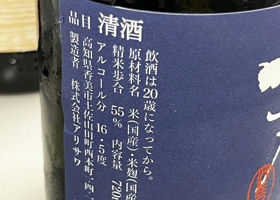 品目 清酒
飲酒は20歳になってから。
原材料名 米(国産)・米麹(国産
精米歩合 55% 内容量 720m
アルコール分 16・5度
製造者 株式会社アリサワ
高知県香美市土佐山田町西本町一四一